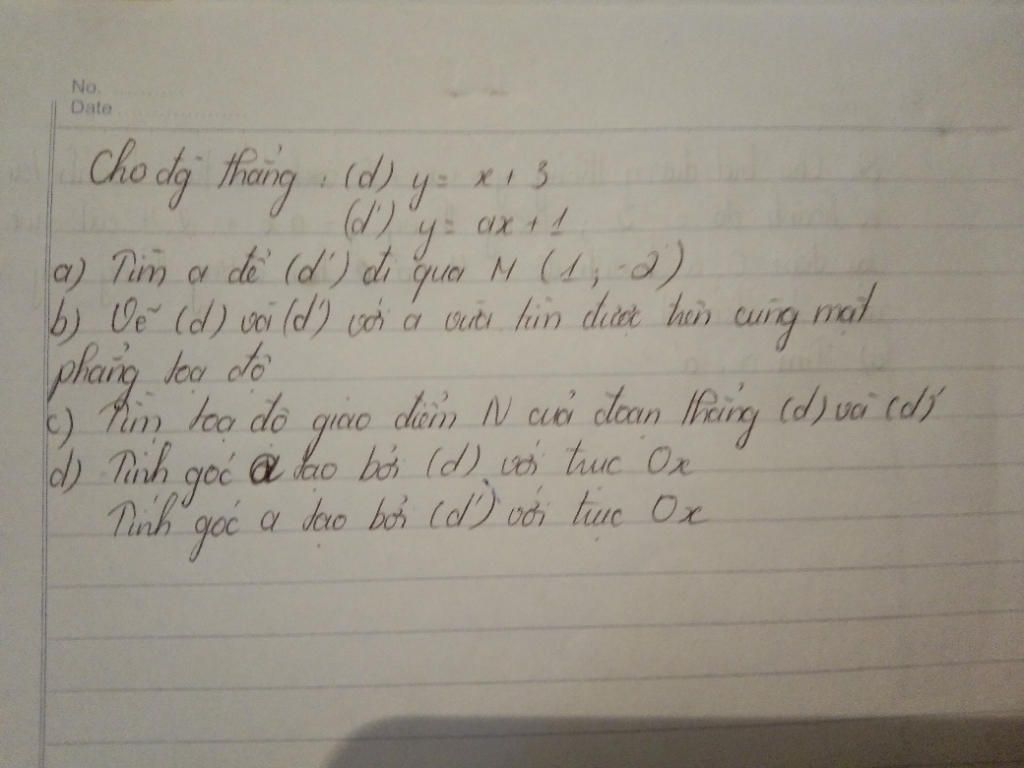 No. ............
Date ......................
Cho đg thẳng : (d) y = x + 3
(d') y = ax + 1
a) Tìm a để (d') đi qua M (1; -2)
b) Vẽ (d) và (d') với a vừa tìm được trên cùng mặt
phẳng tọa độ
c) Tìm tọa độ giao điểm N của đoạn thẳng (d) và (d')
d) Tính góc a tạo bởi (d) với trục Ox
Tính góc a tạo bởi (d') với trục Ox